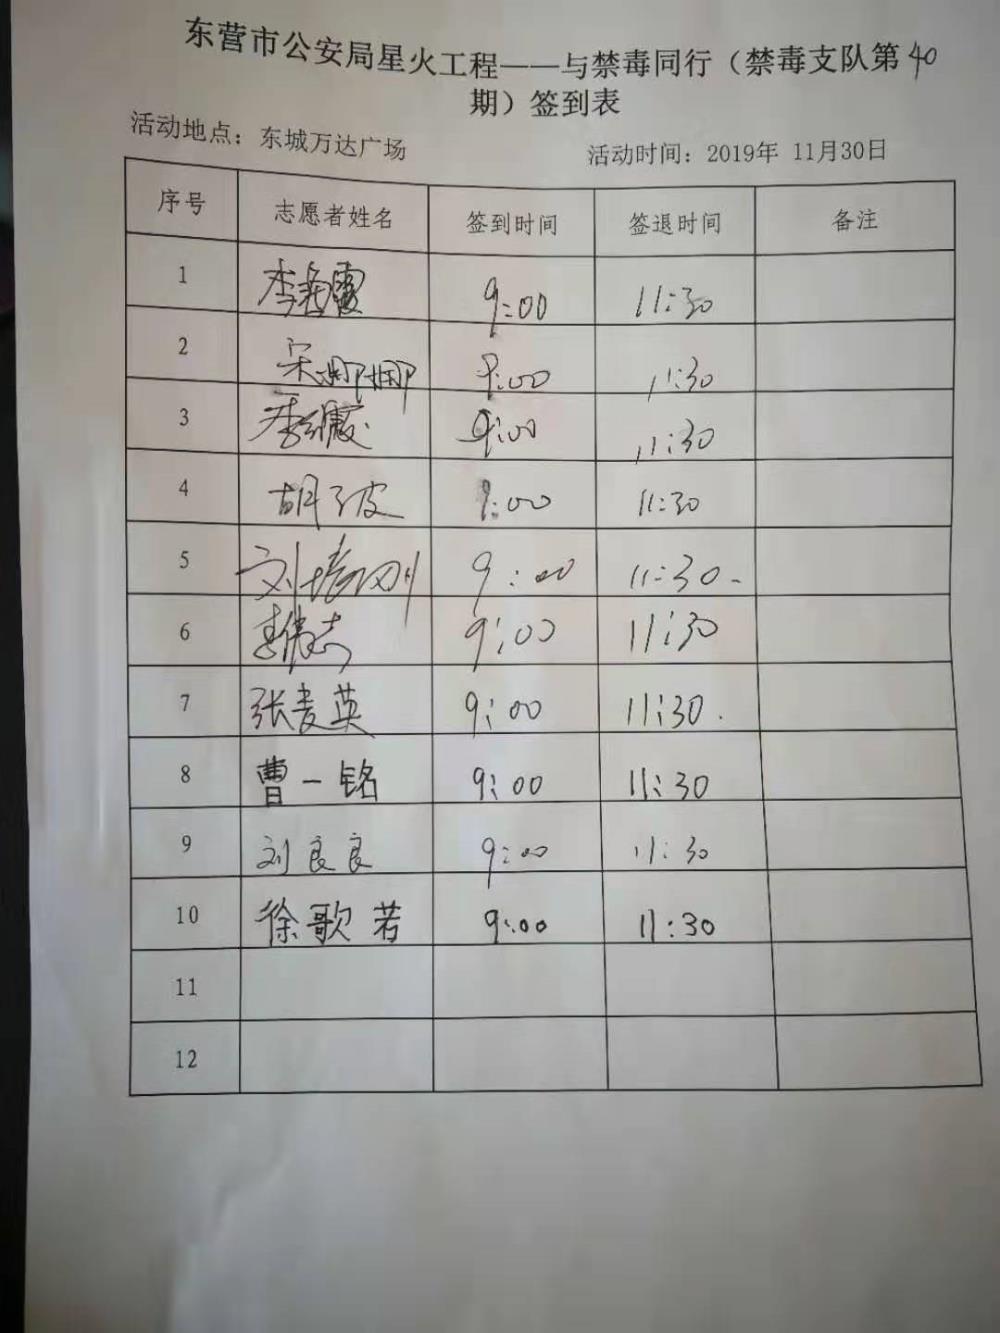 东营市公安局星火工程——与禁毒同行（禁毒支队第40
期）签到表
活动地点：东城万达广场 活动时间：2019年 11月30日
序号 志愿者姓名 签到时间 签退时间 备注
1 李 9:00 11:30
2 宋娜娜 9:00 11:30
3 李 9:00 11:30
4 胡子皮 9:00 11:30
5 刘培刚 9:00 11:30
6 9:00 11:30
7 张麦英 9:00 11:30
8 曹一铭 9:00 11:30
9 刘良良 9:00 11:30
10 徐歌若 9:00 11:30
11
12